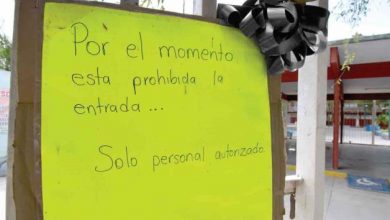 Por el momento
esta prohibida la
entrada...
Solo personal autorizado.